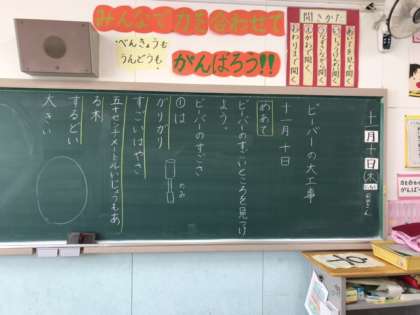 みんなで力を合わせて
べんきょうも
うんどうも
がんばろう!!
聞きかた
あいてを見て聞く
わわりまで聞く
十一月十日(木)
ビーバーの大工事
十一月十日
めあて
ビーバーのすごいところを見つけ
よう。
ビーバーのすごさ
①は
ガリガリ
のみ
すごいはやさ
五十センチメートルいじょうもあ
る木
するどい
大きい